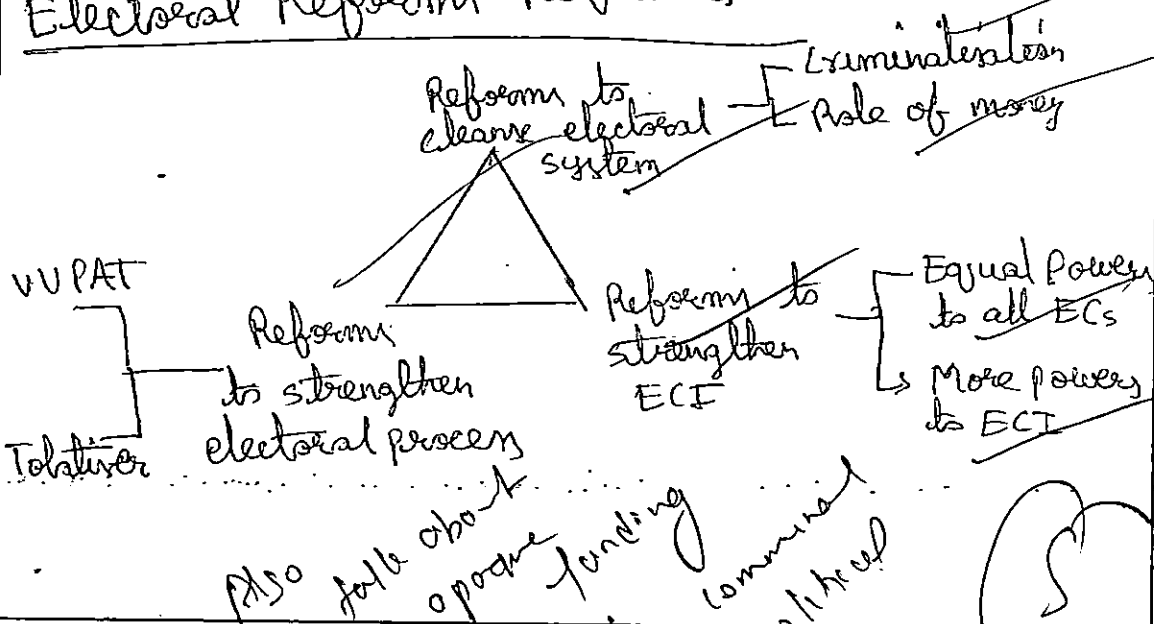 Electoral Reform
Reforms to
cleanse electoral
system
Criminalisation
Role of money
VVPAT
Totaliser
Reforms
to strengthen
electoral process
Reforms to
strengthen
ECI
Equal Powers
to all ECs
More powers
to ECI
Also talk about
opaque funding
communal
political